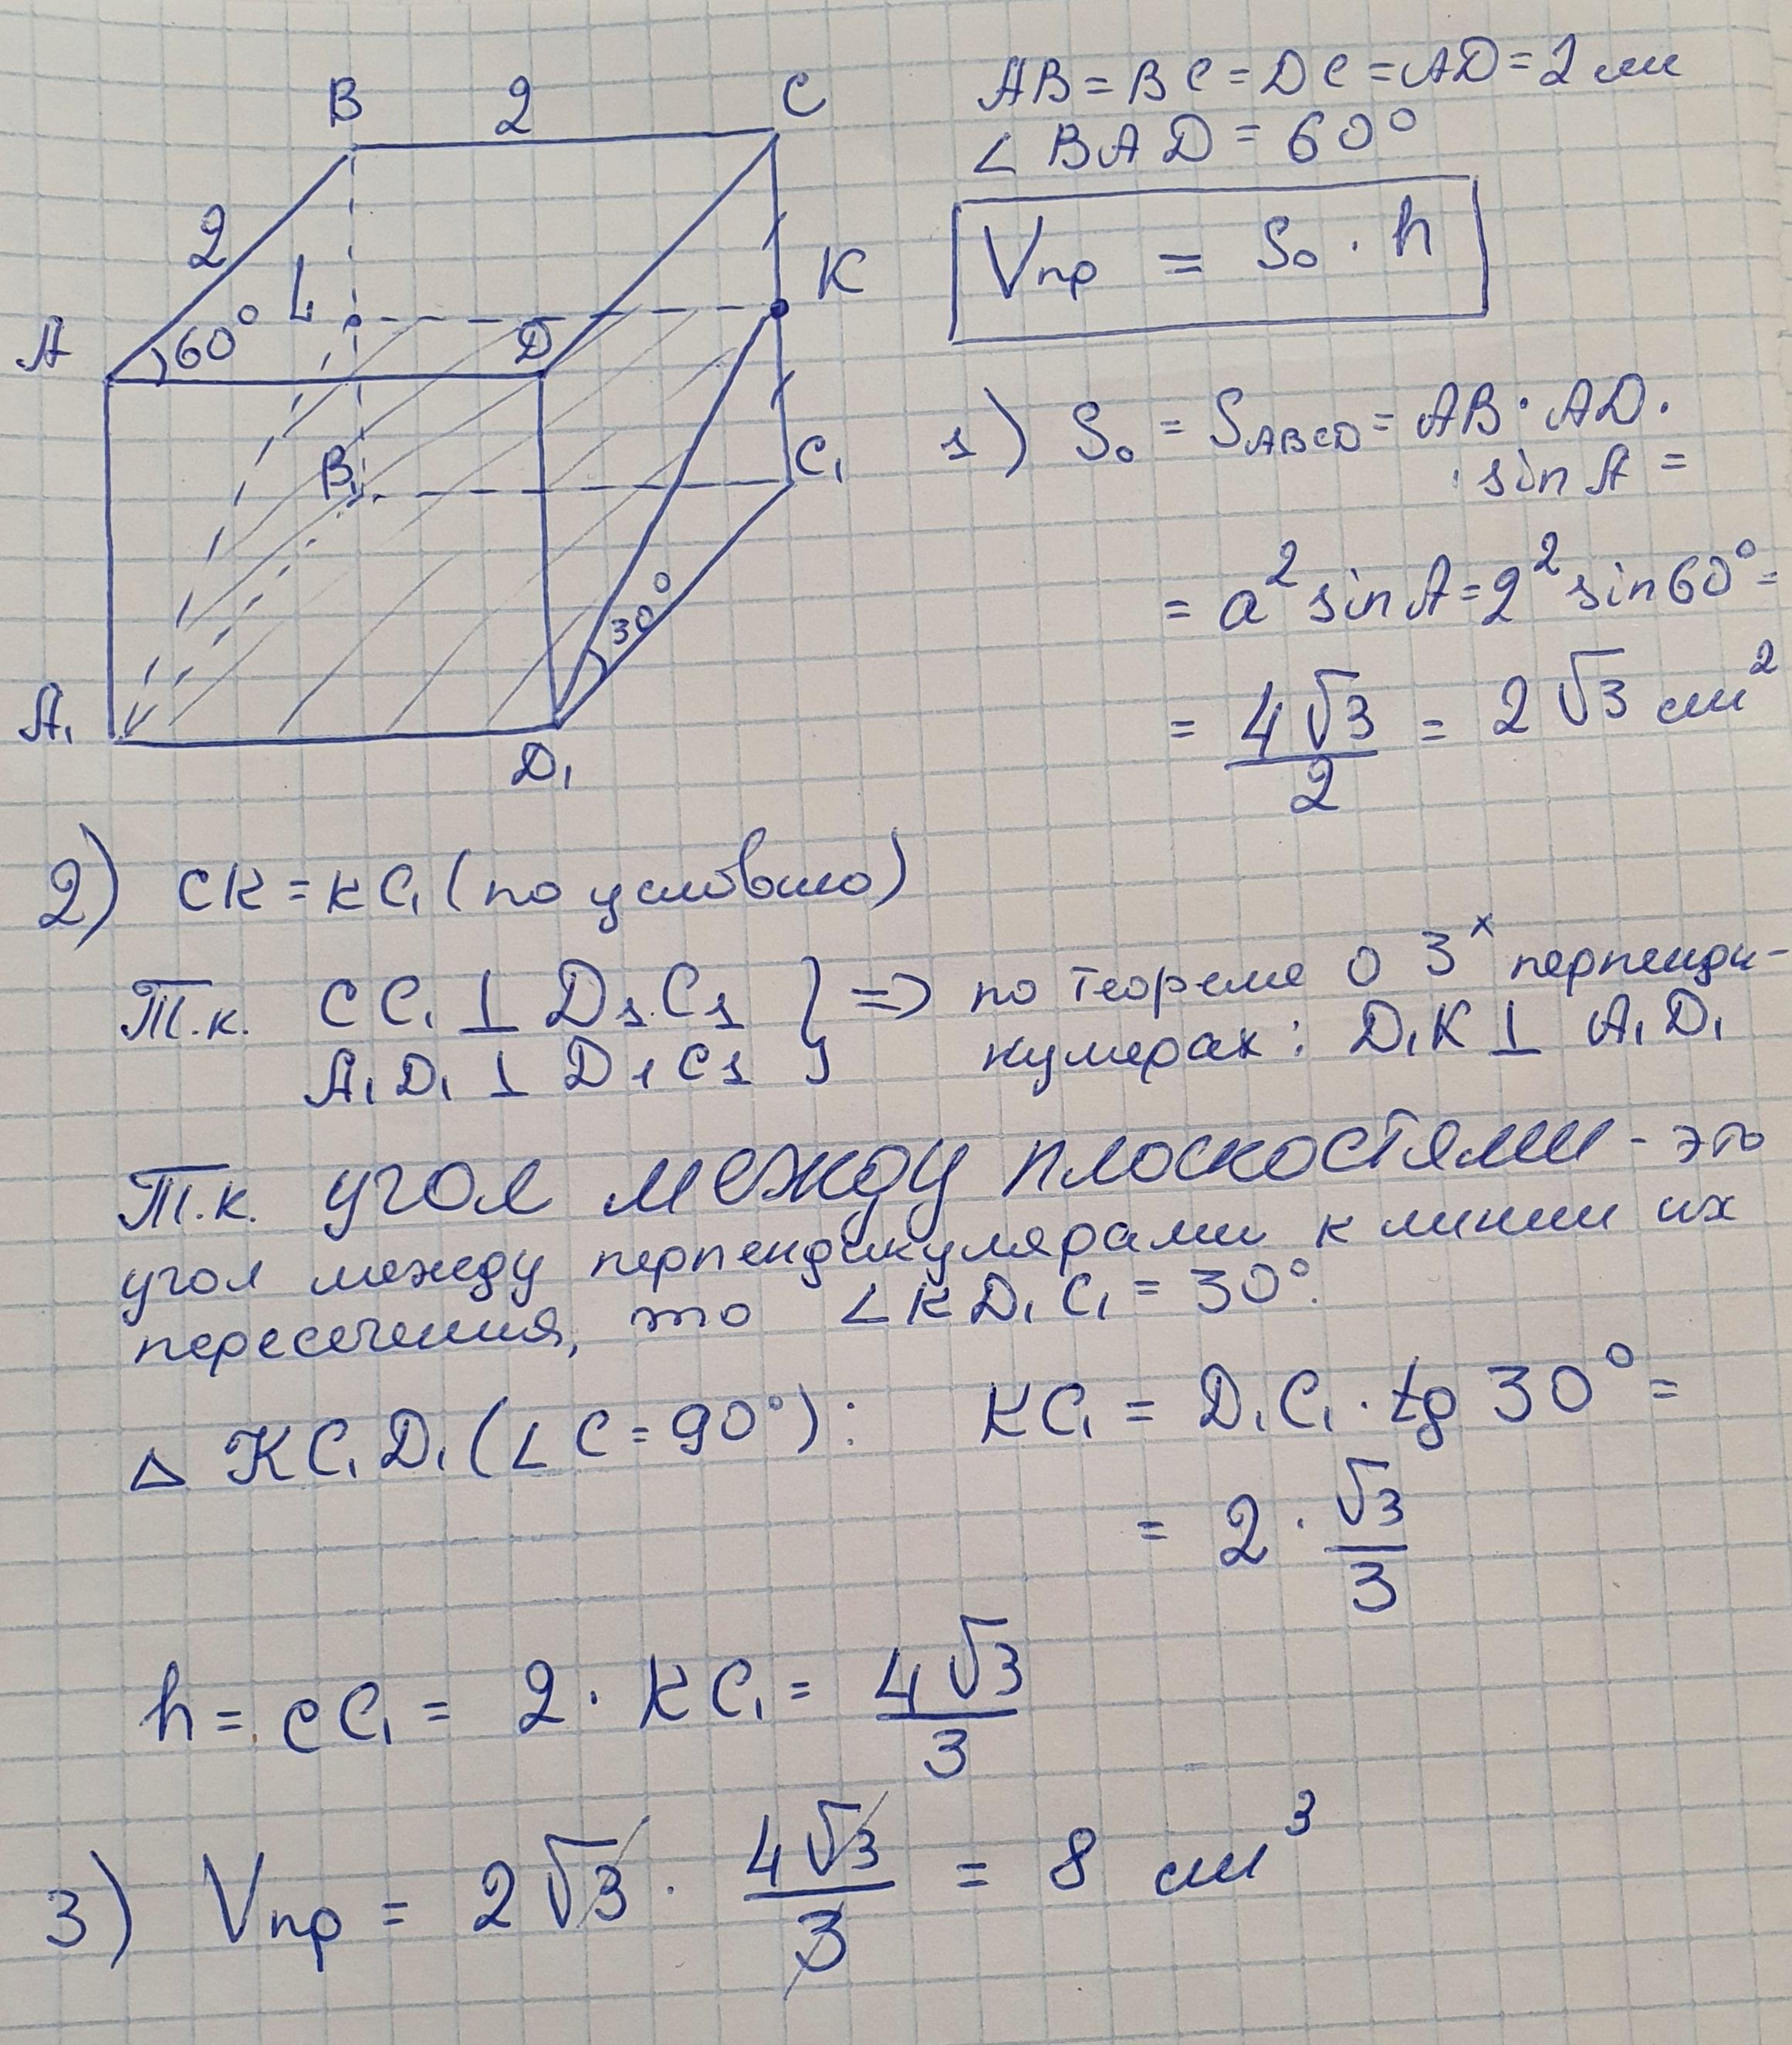 B 2 C
AB = BC = DC = AD = 2 см
∠ BAD = 60°
2
Vпр = S₀ · h
L K
A 60° D
B₁ C₁
1) S₀ = S_ABCD = AB · AD ·
· sin A =
= a² sin A = 2² sin 60° =
30°
= 4√3/2 = 2√3 см²
A₁ D₁
2) CK = KC₁ (по условию)
Т.к. CC₁ ⊥ D₁C₁ } => по теореме о 3ˣ перпенди-
A₁D₁ ⊥ D₁C₁ кулярах: D₁K ⊥ A₁D₁
Т.к. угол между плоскостями - это
угол между перпендикулярами к линии их
пересечения, то ∠KD₁C₁ = 30°.
△ KC₁D₁ (∠C = 90°): KC₁ = D₁C₁ · tg 30° =
= 2 · √3/3
h = CC₁ = 2 · KC₁ = 4√3/3
3) Vпр = 2√3 · 4√3/3 = 8 см³